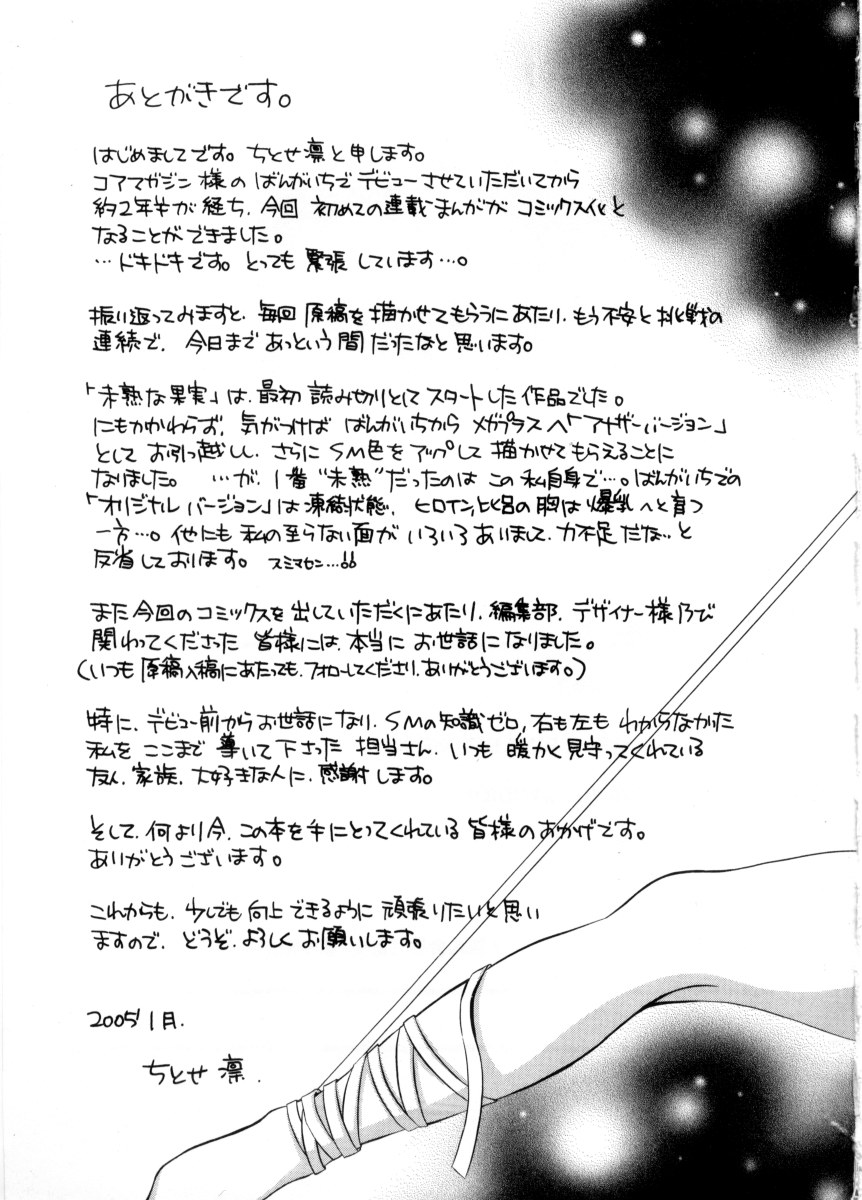 あとがきです。
はじめましてです。ちとせ凛と申します。
コアマガジン様のばんがいちでデビューさせていただいてから
約2年半が経ち、今回初めての連載まんががコミックス化と
なることができました。
…ドキドキです。とっても緊張しています…。
振り返ってみますと、毎回原稿を描かせてもらうにあたり、もう不安と挑戦の
連続で、今日まであっという間だったなと思います。
「未熟な果実」は、最初読み切りとしてスタートした作品でした。
にもかかわらず、気がつけばばんがいちからメガプラスへ「アナザーバージョン」
としてお引っ越しし、さらにSM色をアップして描かせてもらえることに
なりました。…が、1番“未熟”だったのはこの私自身で…。ばんがいちでの
「オリジナルバージョン」は凍結状態、ヒロイン の胸は爆乳へと育つ
一方…。他にも私の至らない面がいろいろありまして、力不足だな…と
反省しております。スミマセン…
また今回のコミックスを出していただくにあたり、編集部、デザイナー様及び
関わってくださった皆様には、本当にお世話になりました。
(いつも原稿入稿にあたっても、フォローしてくださり、ありがとうございます。)
特に、デビュー前からお世話になり、SMの知識ゼロ、右も左もわからなかった
私をここまで導いて下さった担当さん、いつも暖かく見守ってくれている
友人、家族、大好きな人に、感謝します。
そして、何より今、この本を手にとってくれている皆様のおかげです。
ありがとうございます。
これからも、少しでも向上できるように頑張りたいと思い
ますので、どうぞ、よろしくお願いします。
2005 1月.
ちとせ 凛.